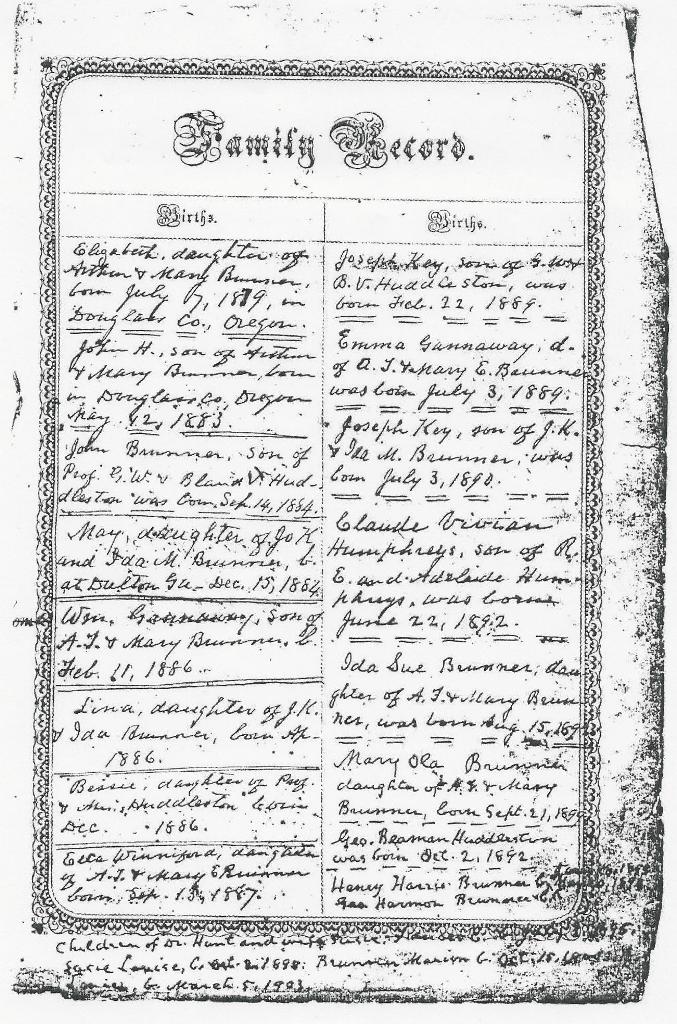 Family Record.
Births.
Elizabeth, daughter of
Arthur & Mary Brunner,
born July 7, 1879, in
Douglass Co., Oregon.
John H., son of Arthur
& Mary Brunner, born
in Douglass Co, Oregon
May 12, 1883.
John Brunner, son of
Prof. G. W. & Bland V. Hud-
dleston was born Sep. 14, 1884.
May, daughter of Jo K
and Ida M. Brunner, b.
at Dalton Ga. Dec. 15, 1884
Wm. Gannaway, son of
A. T. & Mary Brunner b.
Feb. 11, 1886.
Lina, daughter of J. K.
& Ida Brunner, born Ap-
1886.
Bessie, daughter of Prof.
& Mrs. Huddleston born
Dec. 1886.
Winniford, daughter
of A. T. & Mary E Brunner
born, Sep. 13, 1887.
Births.
Joseph Key, son of G. W. &
B. V. Huddleston, was
born Feb. 22, 1889.
Emma Gannaway, d.
of A. T. & Mary E. Brunner
was born July 3, 1889.
Joseph Key, son of J. K.
& Ida M. Brunner, was
born July 3, 1890.
Claude Vivian
Humphreys, son of R.
E. and Adelaide Hum-
phreys, was born
June 22, 1892.
Ida Sue Brunner, dau-
ghter of A. T. & Mary Brun-
ner, was born Aug. 15,
Mary Ola Brunner
daughter of A. T. & Mary
Brunner, born Sept. 21,
Geo. Beaman Huddleston
was born Oct. 2, 1892.
Henry Harris Brunner b.
Geo Harmon Brunner b.
Children of Dr. Hunt and wife Susie.
Susie Louise, b. Oct. 2, 1898. Brunner Marion b. Oct. 15,
b. March 5, 1903.